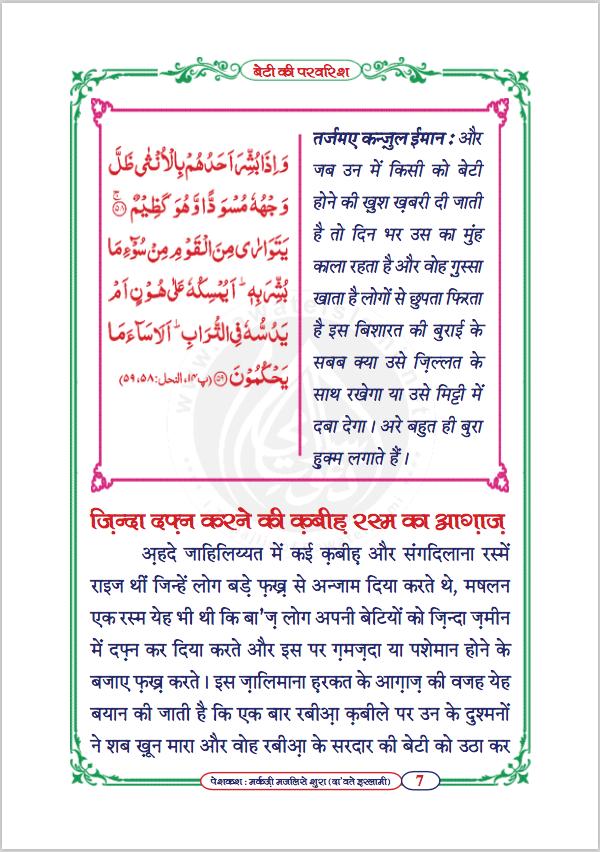 बेटी की परवरिश
وَاِذَا بُشِّرَ اَحَدُهُمْ بِالْاُنْثٰى ظَلَّ
وَجْهُهٗ مُسْوَدًّا وَّهُوَ كَظِیْمٌۚ(۵۸)
یَتَوَارٰى مِنَ الْقَوْمِ مِنْ سُوْٓءِ مَا
بُشِّرَ بِهٖؕ-اَیُمْسِكُهٗ عَلٰى هُوْنٍ اَمْ
یَدُسُّهٗ فِی التُّرَابِؕ-اَلَا سَآءَ مَا
یَحْكُمُوْنَ(۵۹) (پ۱۴، النحل:۵۸، ۵۹)
तर्जमए कन्ज़ुल ईमान : और
जब उन में किसी को बेटी
होने की ख़ुश ख़बरी दी जाती
है तो दिन भर उस का मुंह
काला रहता है और वोह ग़ुस्सा
खाता है लोगों से छुपता फिरता
है इस बिशारत की बुराई के
सबब क्या उसे ज़िल्लत के
साथ रखेगा या उसे मिट्टी में
दबा देगा। अरे बहुत ही बुरा
हुक्म लगाते हैं।
ज़िन्दा दफ़्न करने की क़बीह़ रस्म का आग़ाज़
अ़हदे जाहिलिय्यत में कई क़बीह़ और संगदिलाना रस्में
राइज थीं जिन्हें लोग बड़े फ़ख़्र से अन्जाम दिया करते थे, मषलन
एक रस्म येह भी थी कि बा'ज़ लोग अपनी बेटियों को ज़िन्दा ज़मीन
में दफ़्न कर दिया करते और इस पर ग़मज़दा या पशेमान होने के
बजाए फ़ख़्र करते। इस ज़ालिमाना ह़रकत के आग़ाज़ की वजह येह
बयान की जाती है कि एक बार रबीआ़ क़बीले पर उन के दुश्मनों
ने शब ख़ून मारा और वोह रबीआ़ के सरदार की बेटी को उठा कर
पेशकश : मर्कज़ी मजलिसे शूरा (दा'वते इस्लामी)
7